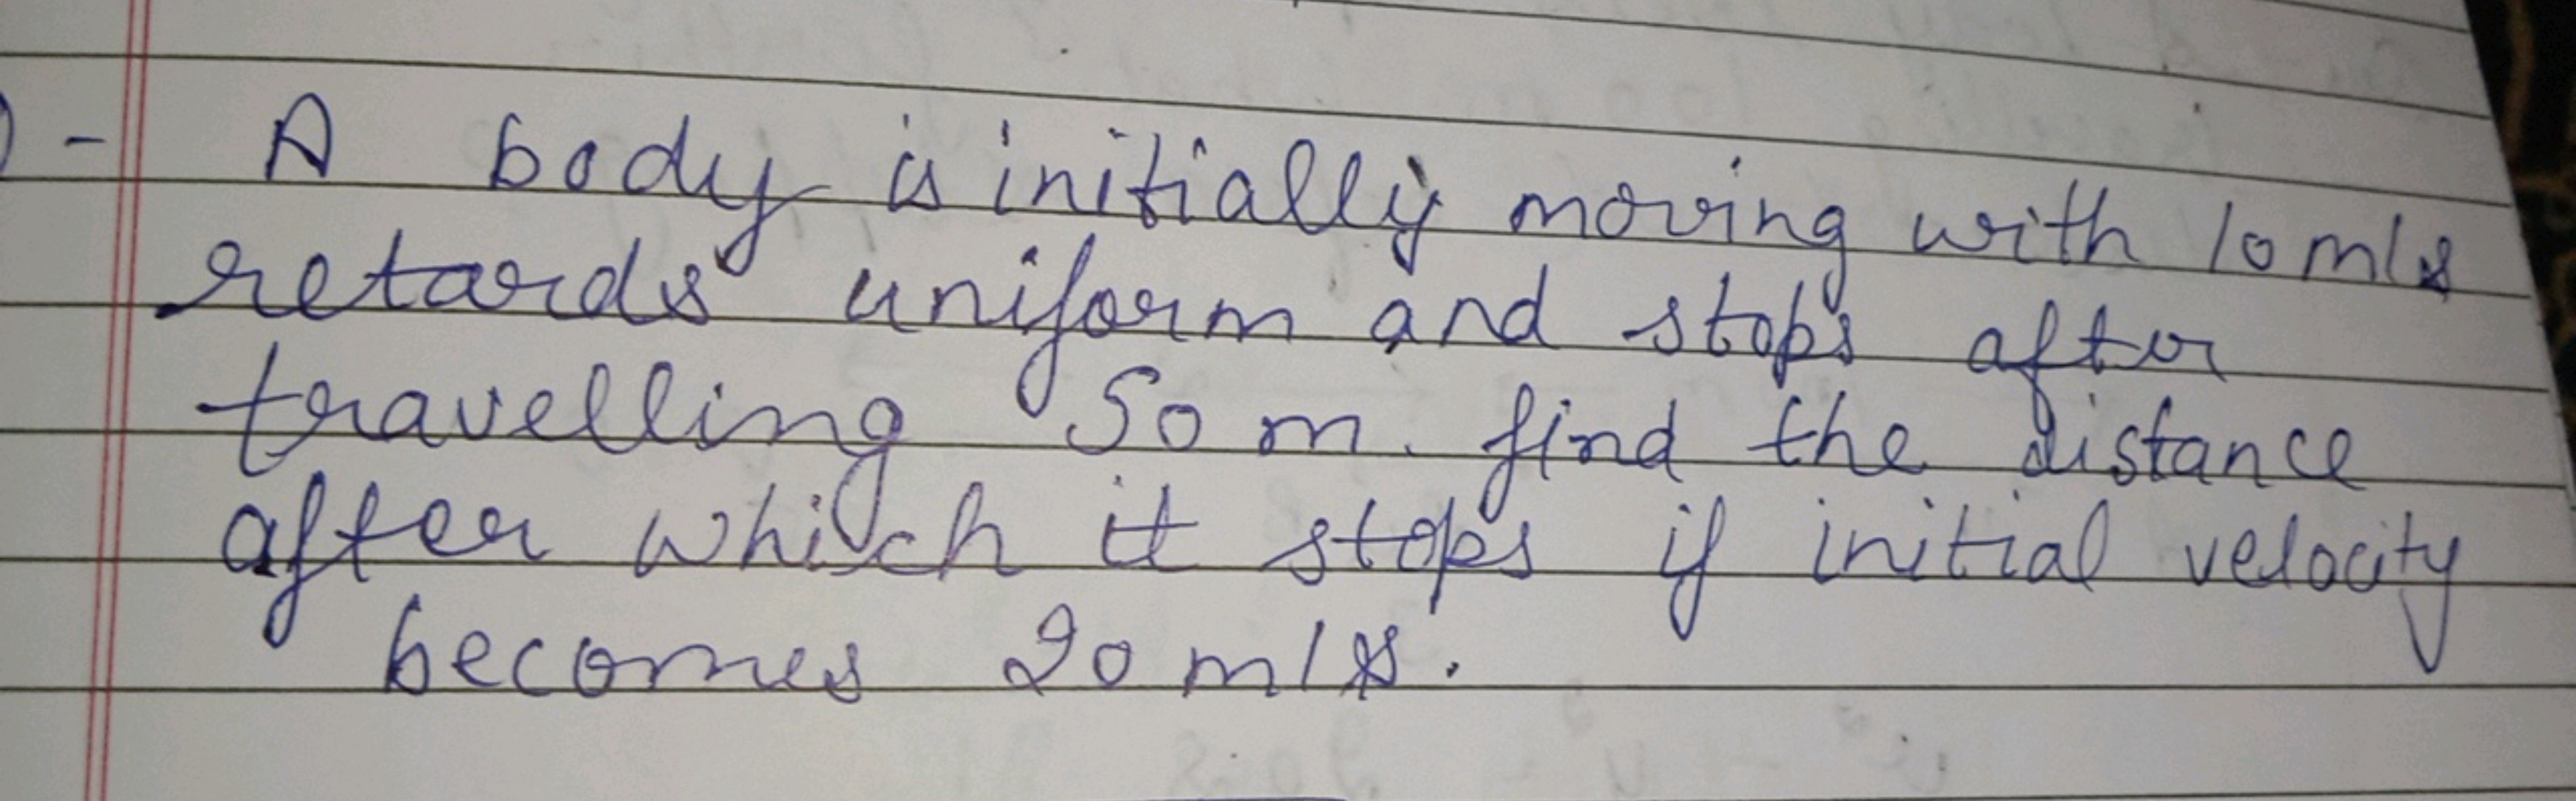 - A body is initially moving with 10 m/s
retards uniform and stops after
travelling 50 m. find the distance
after which it stops if initial velocity
becomes 20 m/s.